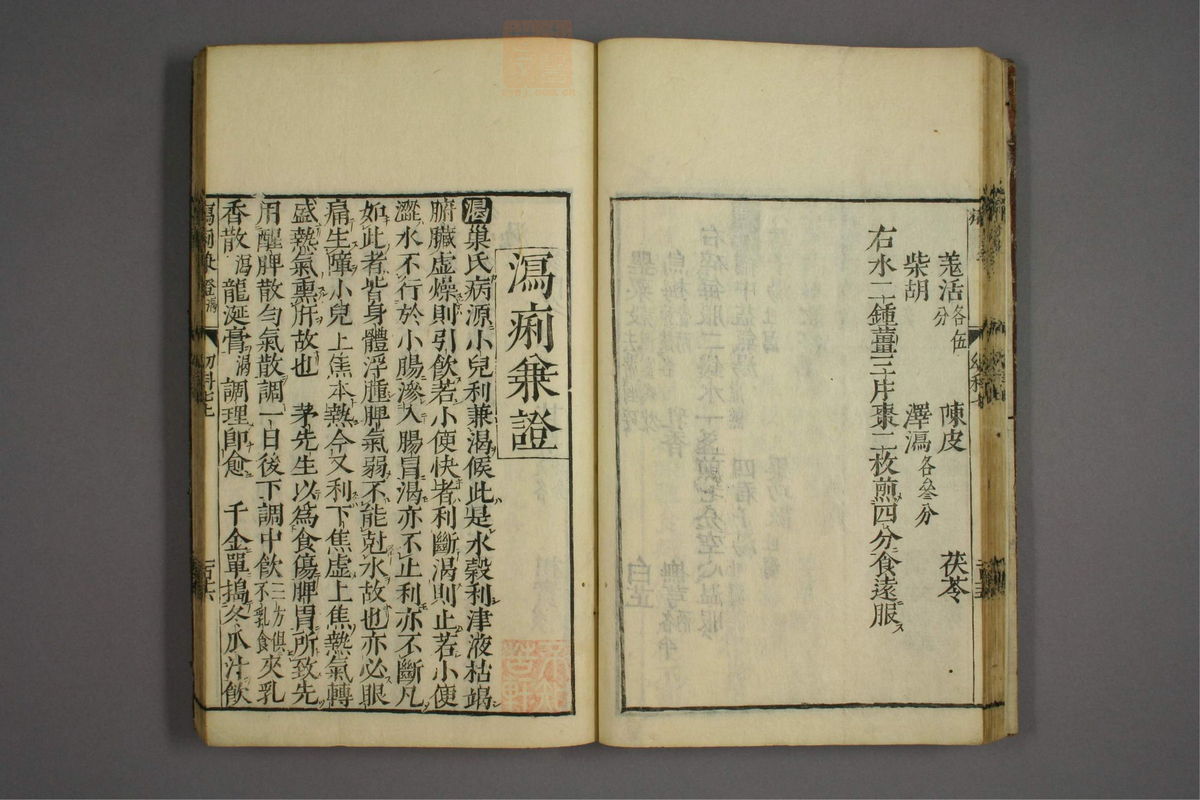 羌活各伍分 陳皮 茯苓
柴胡 澤瀉各叄分
右水二鍾薑三片棗二枚煎四分食遠服
瀉痢兼證
渴巢氏病源小兒利兼渴候此是水穀利津液枯竭
腑臟虛燥則引飲若小便快者利斷渴則止若小便
澀水不行於小腸滲入腸胃渴亦不止利亦不斷凡
如此者皆身體浮腫脾氣弱不能尅水故也亦必眼
痛生障小兒上焦本熱今又利下焦虛上焦熱氣轉
盛熱氣熏肝故也 茅先生以爲食傷脾胃所致先
用醒脾散勻氣散調一日後下調中飲二方俱不乳食夾乳
香散瀉龍涎膏渴調理即愈 千金單搗冬瓜汁飲
瀉痢兼證 幼科七上